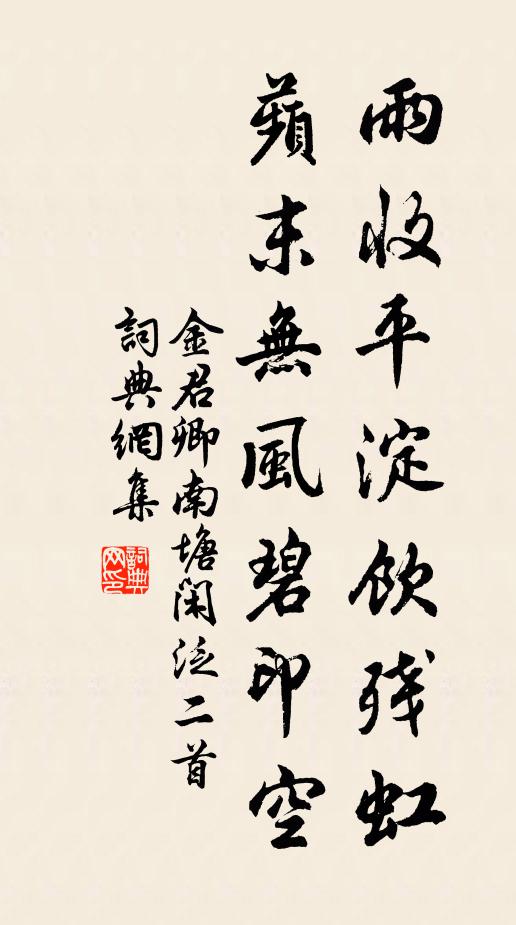 雨收平淀飲残虹
蘋末無風碧印空
金君卿南塘閑泛二首
詞典網集
詞典网印